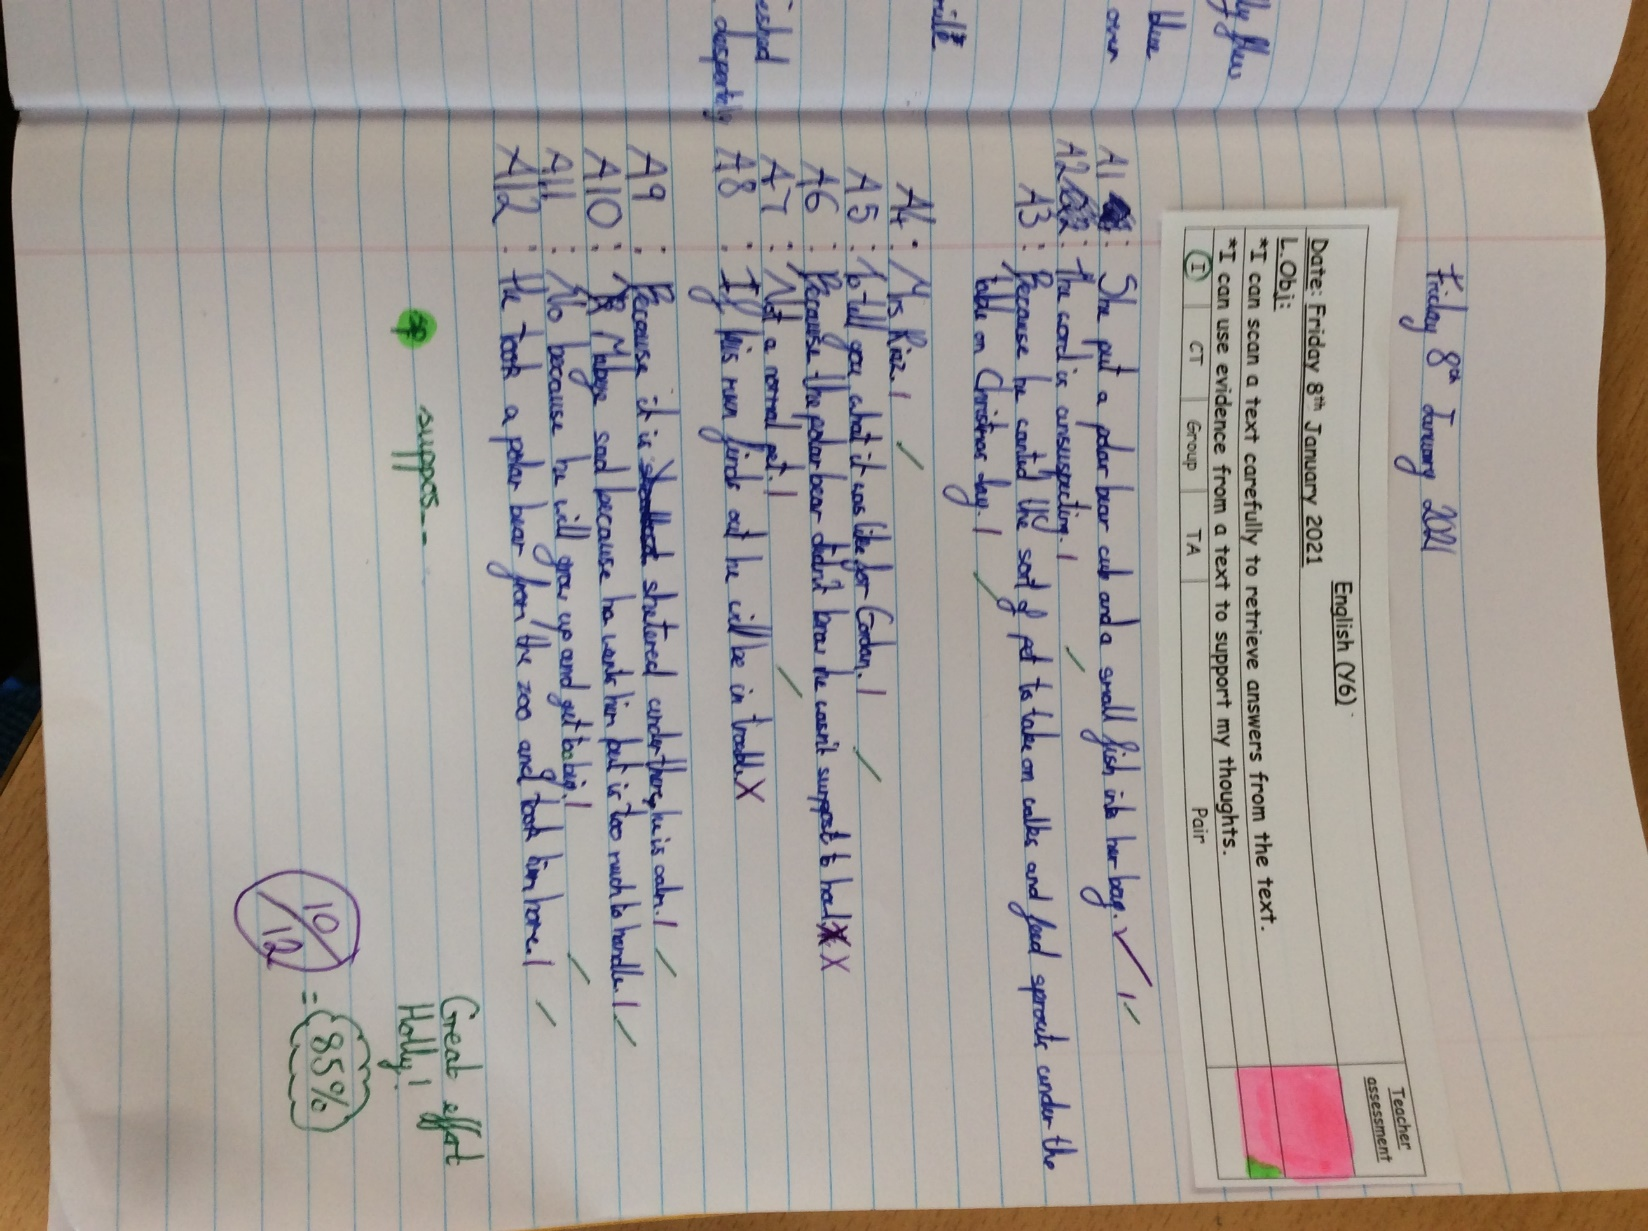 Friday 8th January 2021
English (Y6)
Teacher assessment
Date: Friday 8th January 2021
L.Obj:
*I can scan a text carefully to retrieve answers from the text.
*I can use evidence from a text to support my thoughts.
I CT Group TA Pair
A1 : She put a polar bear cub and a small fish into her bag.
A2 : the word is unsuspecting.
A3 : Because he wanted the sort of pet to take on walks and feed sprouts under the
table on Christmas day.
A4 : Mrs Riaz.
A5 : To tell you what it was like for Gordon.
A6 : Because the polar bear didn't know he wasn't suppost to howl. X
A7 : Not a normal pet.
A8 : If his mum finds out he will be in trouble. X
A9 : Because it is sheltered under there, he is calm.
A10 : Maybe sad because he wants him but is too much to handle.
A11 : No because he will grow up and get too big.
A12 : He took a polar bear from the zoo and took him home.
sp suppos_ _
Great effort
Holly!
10/12 = 85%
ly flew
blue
over
desperately